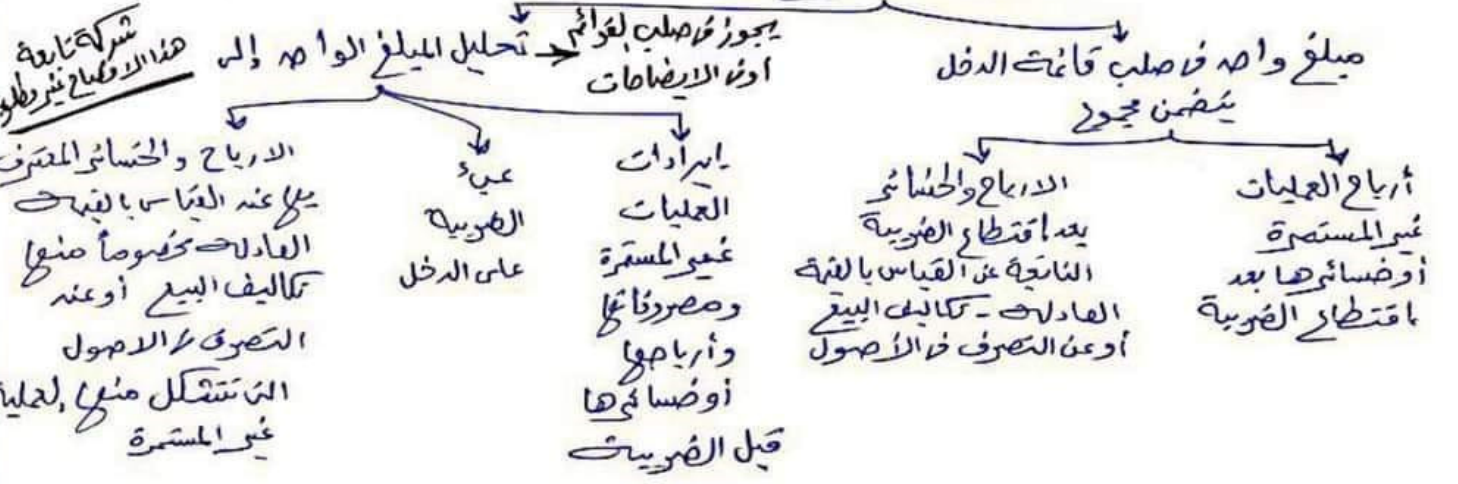 مبلغ واحد فى صلب قائمة الدخل
يتضمن مجموع
أرباح العمليات
غير المستمرة
أو خسائرها بعد
اقتطاع الضريبة
الارباح والخسائر
بعد اقتطاع الضريبة
الناتجة عن القياس بالقيمة
العادلة - تكاليف البيع
أو عن التصرف فى الأصول
تحليل المبلغ الواحد إلى
يجوز فى صلب القوائم
أو فى الايضاحات
شركة تابعة
هذا الافصاح غير مطلوب
ايرادات
العمليات
غير المستمرة
ومصروفاتها
وأرباحها
أو خسائرها
قبل الضريبة
عبء
الضريبة
على الدخل
الارباح والخسائر المعترف
بها عند القياس بالقيمة
العادلة مخصوماً منها
تكاليف البيع أو عند
التصرف فى الاصول
التى تتشكل منها العملية
غير المستمرة